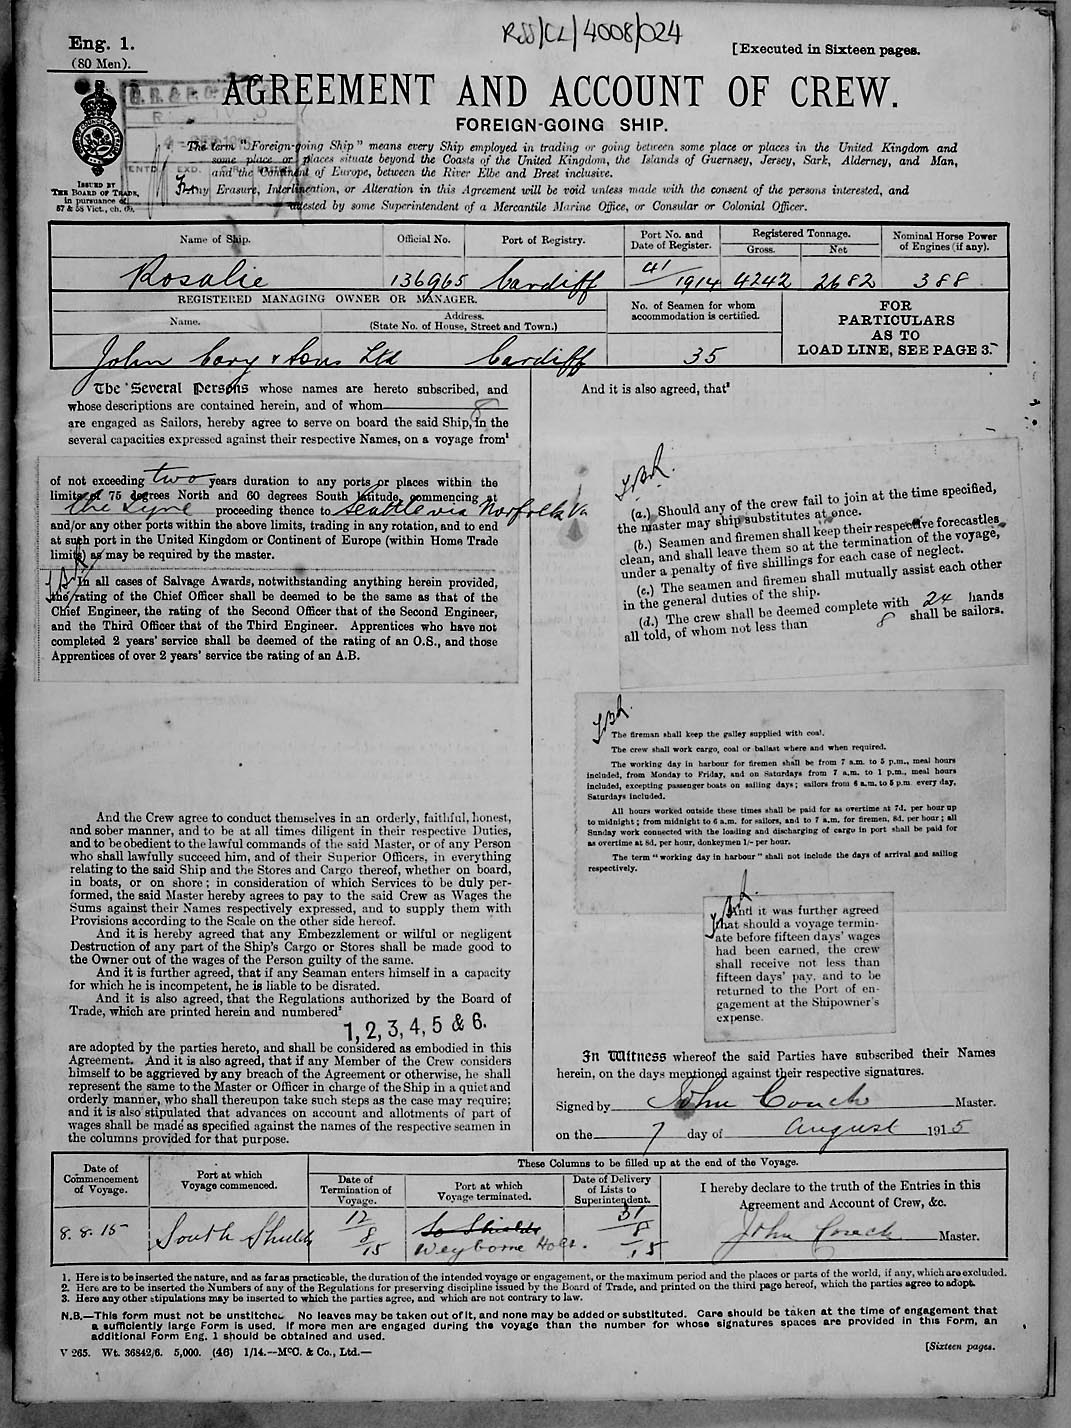 RSS/CL/4008/024
Eng. 1.
(80 Men).
[Executed in Sixteen pages.
AGREEMENT AND ACCOUNT OF CREW.
FOREIGN-GOING SHIP.
The term "Foreign-going Ship" means every Ship employed in trading or going between some place or places in the United Kingdom and
some place or places situate beyond the Coasts of the United Kingdom, the Islands of Guernsey, Jersey, Sark, Alderney, and Man,
and the Continent of Europe, between the River Elbe and Brest inclusive.
Any Erasure, Interlineation, or Alteration in this Agreement will be void unless made with the consent of the persons interested, and
attested by some Superintendent of a Mercantile Marine Office, or Consular or Colonial Officer.
ISSUED BY
THE BOARD OF TRADE,
in pursuance of
57 & 58 Vict., ch. 60.
Name of Ship. Official No. Port of Registry. Port No. and Date of Register. Registered Tonnage. Gross. Net Nominal Horse Power of Engines (if any).
Rosalie 136965 Cardiff 41/1914 4242 2682 388
REGISTERED MANAGING OWNER OR MANAGER.
Name. Address. (State No. of House, Street and Town.)
No. of Seamen for whom accommodation is certified.
FOR
PARTICULARS
AS TO
LOAD LINE, SEE PAGE 3.
John Cory & Sons Ltd Cardiff 35
The Several Persons whose names are hereto subscribed, and
whose descriptions are contained herein, and of whom 8
are engaged as Sailors, hereby agree to serve on board the said Ship, in the
several capacities expressed against their respective Names, on a voyage from¹
of not exceeding two years duration to any ports or places within the
limits of 75 degrees North and 60 degrees South latitude, commencing at
the Tyne proceeding thence to Seattle via Norfolk Va
and/or any other ports within the above limits, trading in any rotation, and to end
at such port in the United Kingdom or Continent of Europe (within Home Trade
limits) as may be required by the master.
In all cases of Salvage Awards, notwithstanding anything herein provided,
the rating of the Chief Officer shall be deemed to be the same as that of the
Chief Engineer, the rating of the Second Officer that of the Second Engineer,
and the Third Officer that of the Third Engineer. Apprentices who have not
completed 2 years' service shall be deemed of the rating of an O.S., and those
Apprentices of over 2 years' service the rating of an A.B.
And the Crew agree to conduct themselves in an orderly, faithful, honest,
and sober manner, and to be at all times diligent in their respective Duties,
and to be obedient to the lawful commands of the said Master, or of any Person
who shall lawfully succeed him, and of their Superior Officers, in everything
relating to the said Ship and the Stores and Cargo thereof, whether on board,
in boats, or on shore; in consideration of which Services to be duly per-
formed, the said Master hereby agrees to pay to the said Crew as Wages the
Sums against their Names respectively expressed, and to supply them with
Provisions according to the Scale on the other side hereof.
And it is hereby agreed that any Embezzlement or wilful or negligent
Destruction of any part of the Ship's Cargo or Stores shall be made good to
the Owner out of the wages of the Person guilty of the same.
And it is further agreed, that if any Seaman enters himself in a capacity
for which he is incompetent, he is liable to be disrated.
And it is also agreed, that the Regulations authorized by the Board of
Trade, which are printed herein and numbered²
1, 2, 3, 4, 5 & 6.
are adopted by the parties hereto, and shall be considered as embodied in this
Agreement. And it is also agreed, that if any Member of the Crew considers
himself to be aggrieved by any breach of the Agreement or otherwise, he shall
represent the same to the Master or Officer in charge of the Ship in a quiet and
orderly manner, who shall thereupon take such steps as the case may require;
and it is also stipulated that advances on account and allotments of part of
wages shall be made as specified against the names of the respective seamen in
the columns provided for that purpose.
And it is also agreed, that³
(a.) Should any of the crew fail to join at the time specified,
the master may ship substitutes at once.
(b.) Seamen and firemen shall keep their respective forecastles
clean, and shall leave them so at the termination of the voyage,
under a penalty of five shillings for each case of neglect.
(c.) The seamen and firemen shall mutually assist each other
in the general duties of the ship.
(d.) The crew shall be deemed complete with 24 hands
all told, of whom not less than 8 shall be sailors.
The fireman shall keep the galley supplied with coal.
The crew shall work cargo, coal or ballast where and when required.
The working day in harbour for firemen shall be from 7 a.m. to 5 p.m., meal hours
included, from Monday to Friday, and on Saturdays from 7 a.m. to 1 p.m., meal hours
included, excepting passenger boats on sailing days; sailors from 6 a.m. to 5 p.m. every day,
Saturdays included.
All hours worked outside these times shall be paid for as overtime at 7d. per hour up
to midnight; from midnight to 6 a.m. for sailors, and to 7 a.m. for firemen, 8d. per hour; all
Sunday work connected with the loading and discharging of cargo in port shall be paid for
as overtime at 8d. per hour, donkeymen 1/- per hour.
The term "working day in harbour" shall not include the days of arrival and sailing
respectively.
And it was further agreed
that should a voyage termin-
ate before fifteen days' wages
had been earned, the crew
shall receive not less than
fifteen days' pay, and to be
returned to the Port of en-
gagement at the Shipowner's
expense.
In Witness whereof the said Parties have subscribed their Names
herein, on the days mentioned against their respective signatures.
Signed by John Couch Master.
on the 7 day of August 1915
Date of Commencement of Voyage. Port at which Voyage commenced. These Columns to be filled up at the end of the Voyage.
Date of Termination of Voyage. Port at which Voyage terminated. Date of Delivery of Lists to Superintendent.
I hereby declare to the truth of the Entries in this
Agreement and Account of Crew, &c.
8.8.15 South Shields 12/8/15 So Shields Weybourne 31/8/15 John Couch Master.
1. Here is to be inserted the nature, and as far as practicable, the duration of the intended voyage or engagement, or the maximum period and the places or parts of the world, if any, which are excluded.
2. Here are to be inserted the Numbers of any of the Regulations for preserving discipline issued by the Board of Trade, and printed on the third page hereof, which the parties agree to adopt.
3. Here any other stipulations may be inserted to which the parties agree, and which are not contrary to law.
N.B.—This form must not be unstitched. No leaves may be taken out of it, and none may be added or substituted. Care should be taken at the time of engagement that
a sufficiently large Form is used. If more men are engaged during the voyage than the number for whose signatures spaces are provided in this Form, an
additional Form Eng. 1 should be obtained and used.
V 265. Wt. 36842/6. 5,000. (46) 1/14.—McC. & Co., Ltd.—
[Sixteen pages.